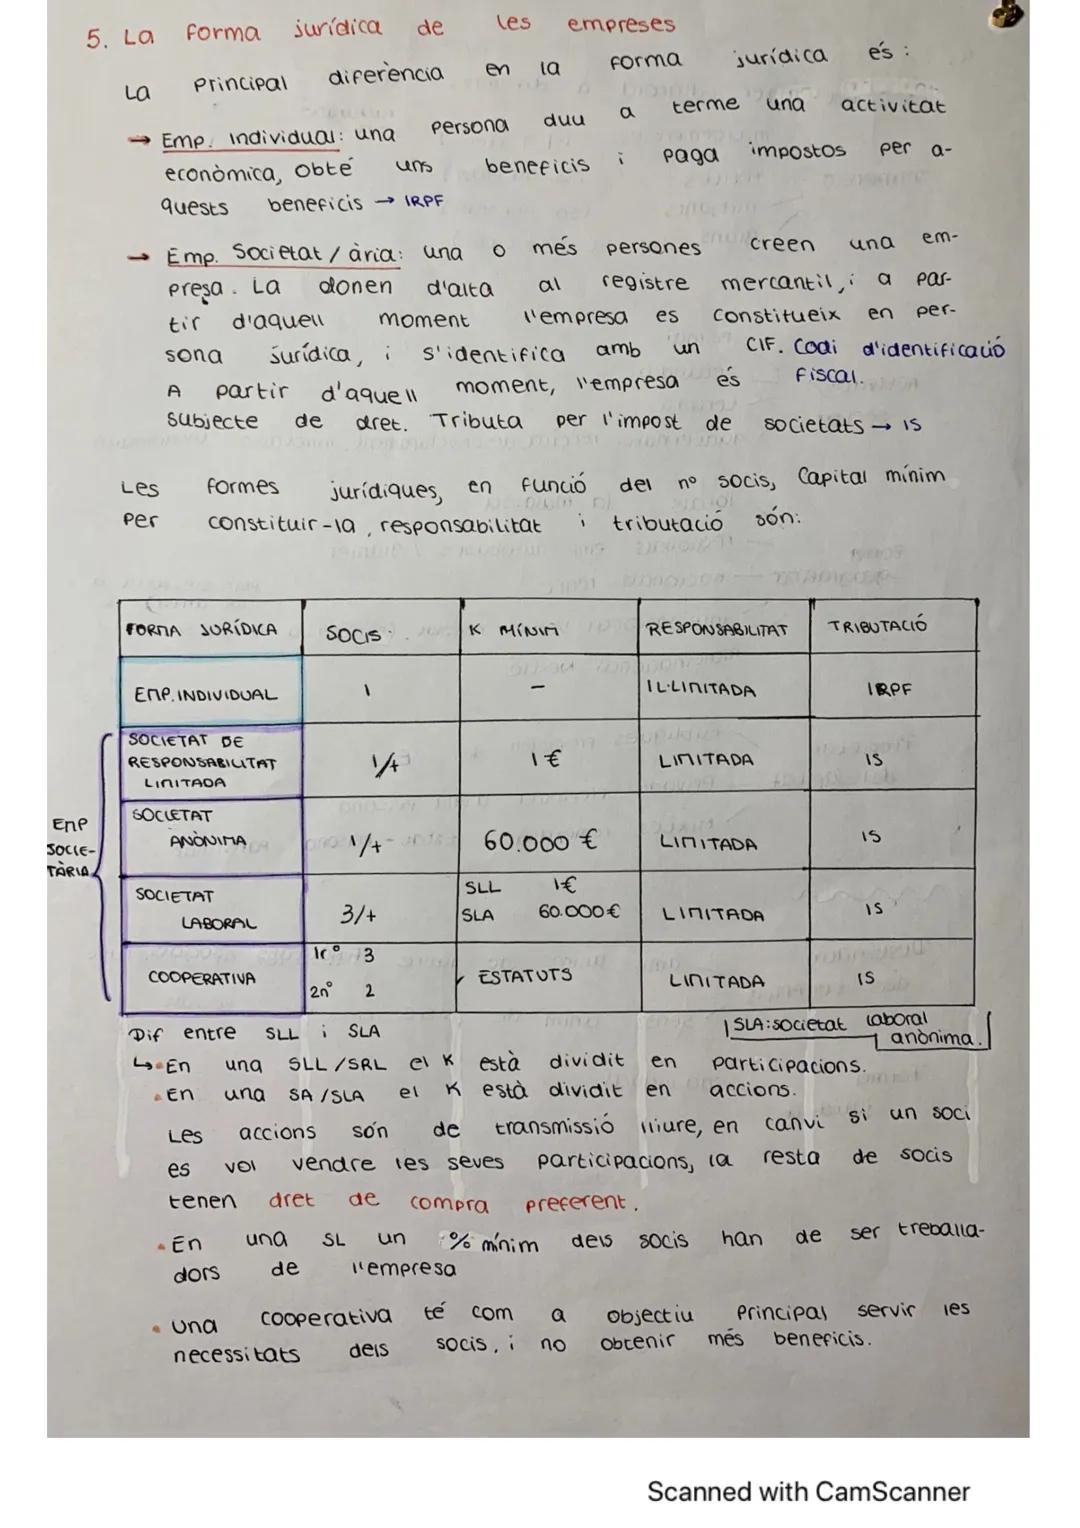 5. La forma jurídica de les empreses
La principal diferència en la forma jurídica és:
→ Emp. Individual: una persona duu a terme una activitat
econòmica, obté uns beneficis i paga impostos per a-
quests beneficis → IRPF
→ Emp. Societat / ària: una o més persones creen una em-
presa. La donen d'alta al registre mercantil, i a par-
tir d'aquell moment l'empresa es constitueix en per-
sona jurídica, i s'identifica amb un CIF. Codi d'identificació
A partir d'aquell moment, l'empresa és fiscal.
subjecte de dret. Tributa per l'impost de societats → IS
Les formes jurídiques, en funció del nº socis, Capital mínim
per constituir-la, responsabilitat i tributació són:
FORMA JURÍDICA SOCIS K MÍNIM RESPONSABILITAT TRIBUTACIÓ
EMP. INDIVIDUAL 1 - IL·LIMITADA IRPF
SOCIETAT DE
RESPONSABILITAT 1/+ 1€ LIMITADA IS
LIMITADA
EMP
SOCIE-
TÀRIA
SOCIETAT
ANÒNIMA 1/+ 60.000 € LIMITADA IS
SOCIETAT SLL 1€
LABORAL 3/+ SLA 60.000€ LIMITADA IS
1rº 3
COOPERATIVA ESTATUTS LIMITADA IS
2nº 2
Dif entre SLL i SLA
SLA: societat laboral
anònima.
↳ • En una SLL/SRL el K està dividit en participacions.
• En una SA/SLA el K està dividit en accions.
Les accions són de transmissió lliure, en canvi si un soci
es vol vendre les seves participacions, la resta de socis
tenen dret de compra preferent.
• En una SL un % mínim dels socis han de ser treballa-
dors de l'empresa
• Una cooperativa té com a objectiu principal servir les
necessitats dels socis, i no obtenir més beneficis.
Scanned with CamScanner